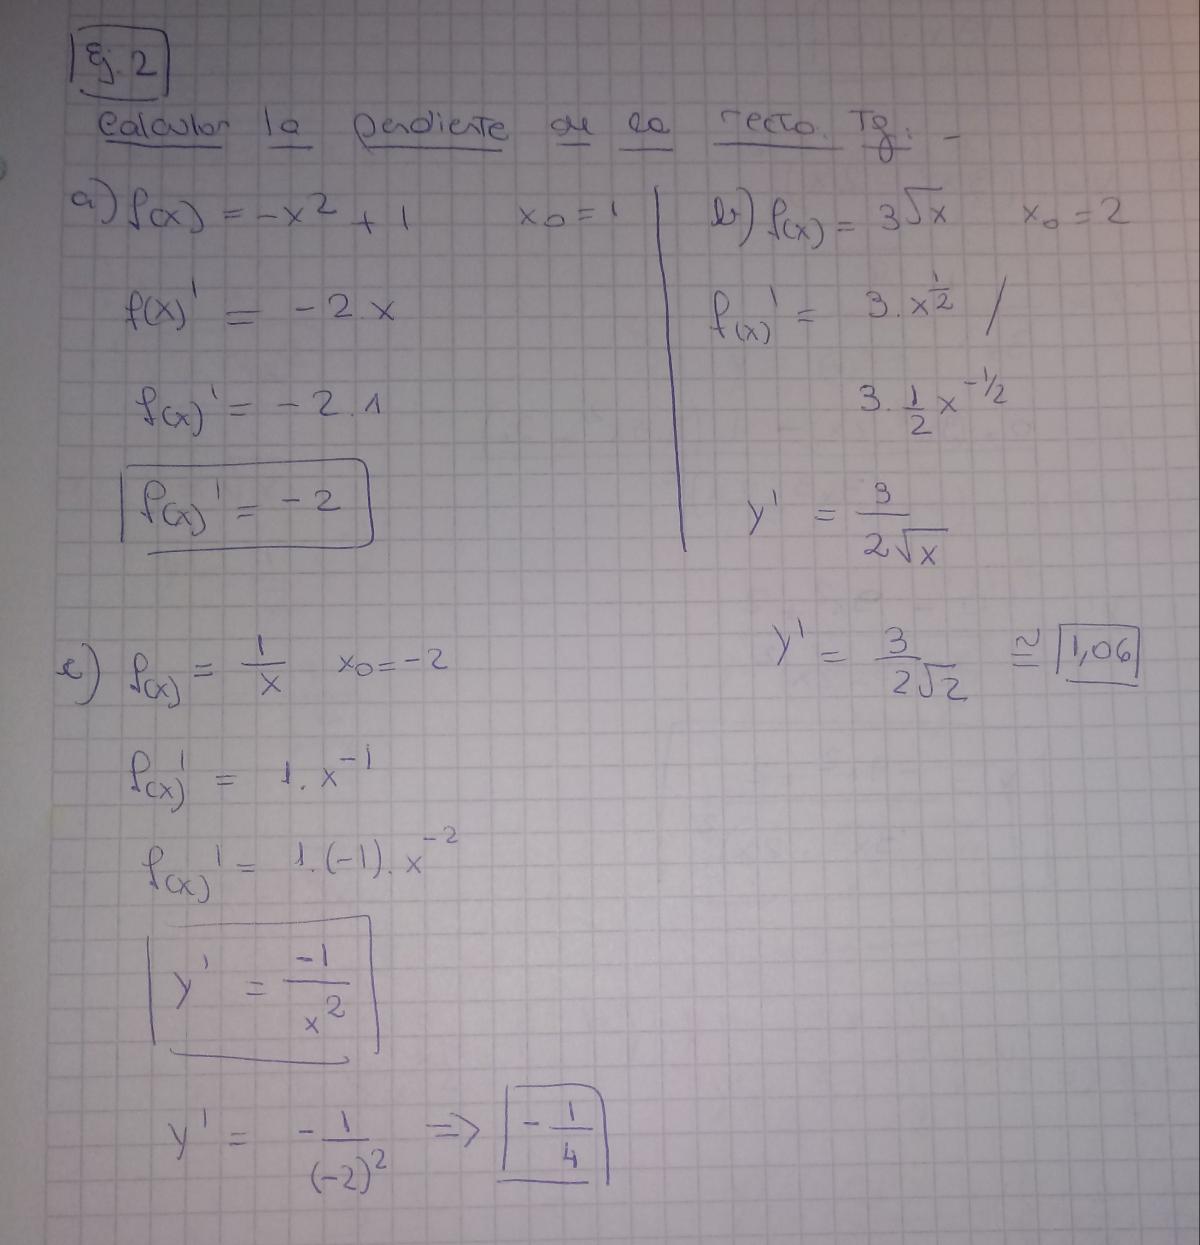 Ej. 2
Calcular la pendiente de la recta Tg. -
a) f(x) = -x² + 1   x₀ = 1
f(x)' = -2.x
f(x)' = -2.1
f(x)' = -2
b) f(x) = 3√x   x₀ = 2
f(x)' = 3.x^(1/2) /
3. 1/2 x^(-1/2)
y' = 3/(2√x)
y' = 3/(2√2) ≅ 1,06
c) f(x) = 1/x   x₀ = -2
f(x)' = 1.x⁻¹
f(x)' = 1.(-1).x⁻²
y' = -1/x²
y' = -1/(-2)² ⇒ -1/4